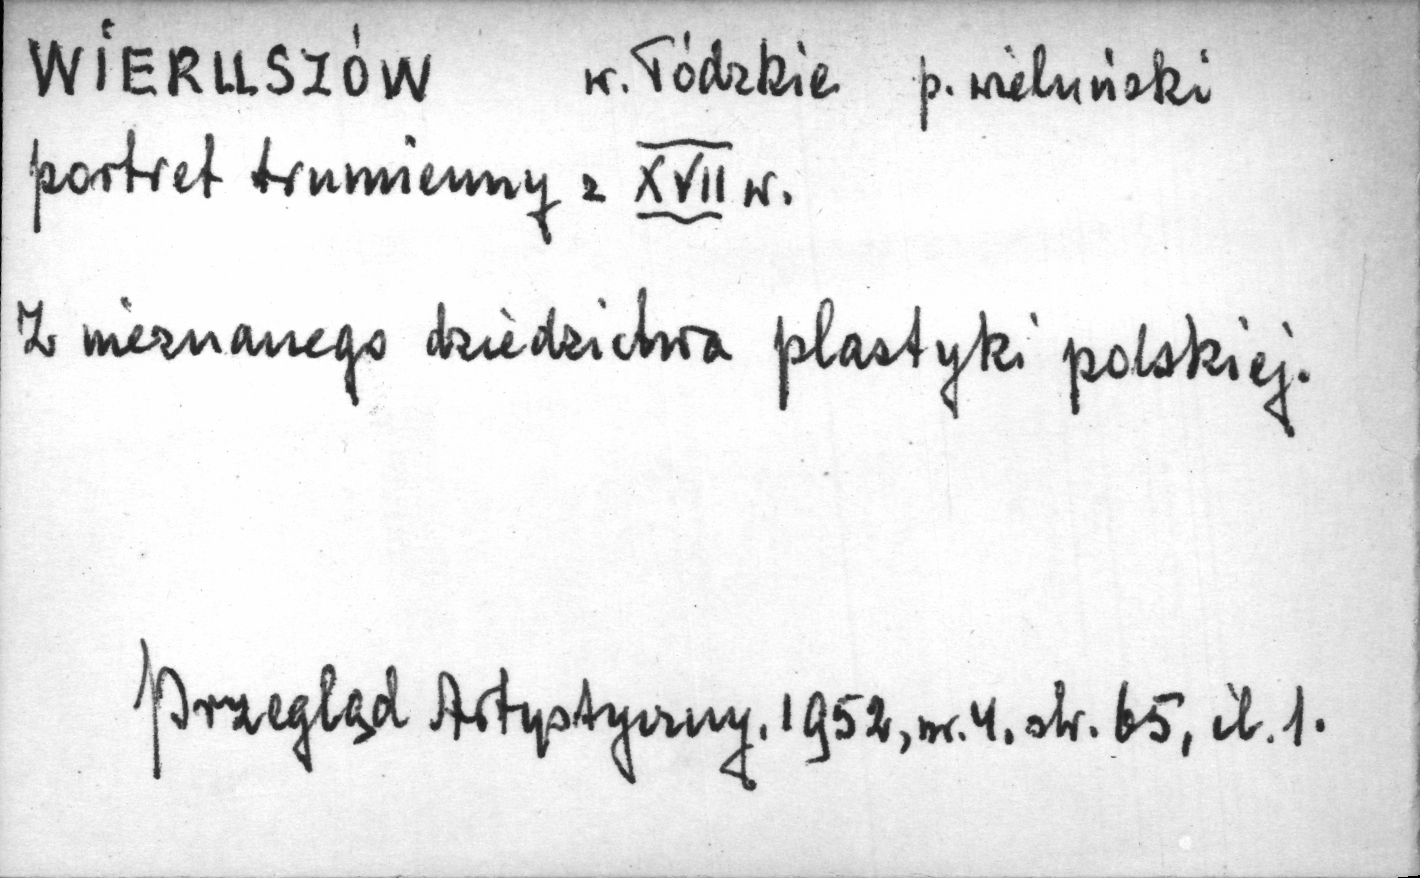 WIERUSZÓW w. Łódzkie p. wieluński
portret trumienny z XVII w.
Z nieznanego dziedzictwa plastyki polskiej.
Przegląd Artystyczny. 1952, nr. 4. str. 65, il. 1.